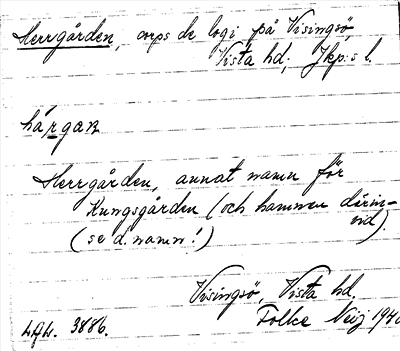 Herrgården, corps de logi på Visingsö,
Vista hd, Jkp:s l.
hárgan
Herrgården, annat namn för
Kungsgården (och hamnen därin-
vid).
(se d. namn!)
Visingsö, Vista hd.
3886. Folke Neij 194